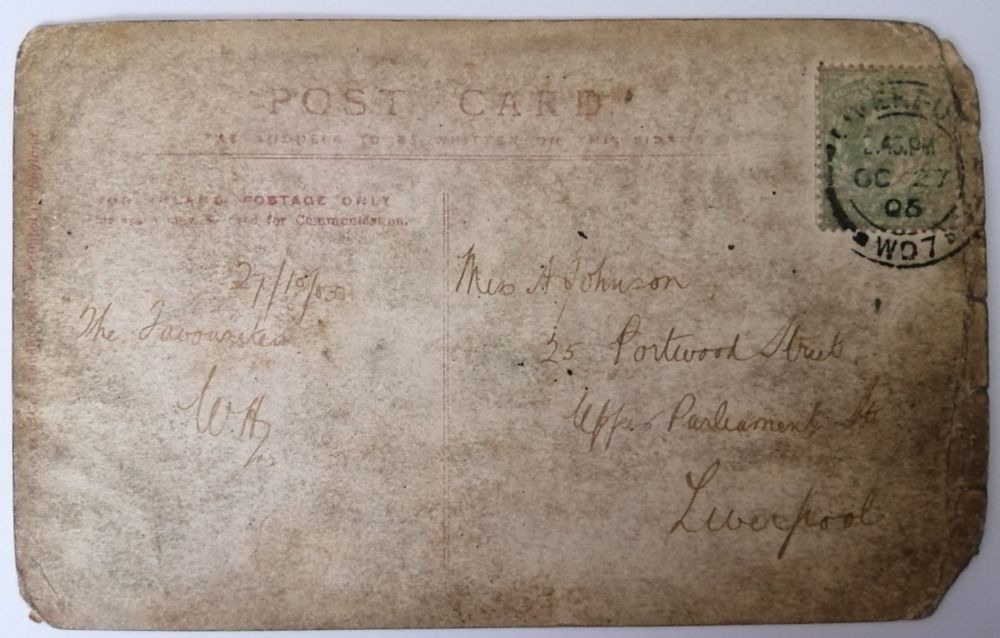 POST CARD
THE ADDRESS TO BE WRITTEN ON THIS SIDE
FOR INLAND POSTAGE ONLY
this space may be used for Communication.
LIVERPOOL
2.45.PM
OC 27
05
LCM
27/10/05
The Favourites
W.H
Miss A Johnson
25 Portwood Street
Upper Parliament St
Liverpool